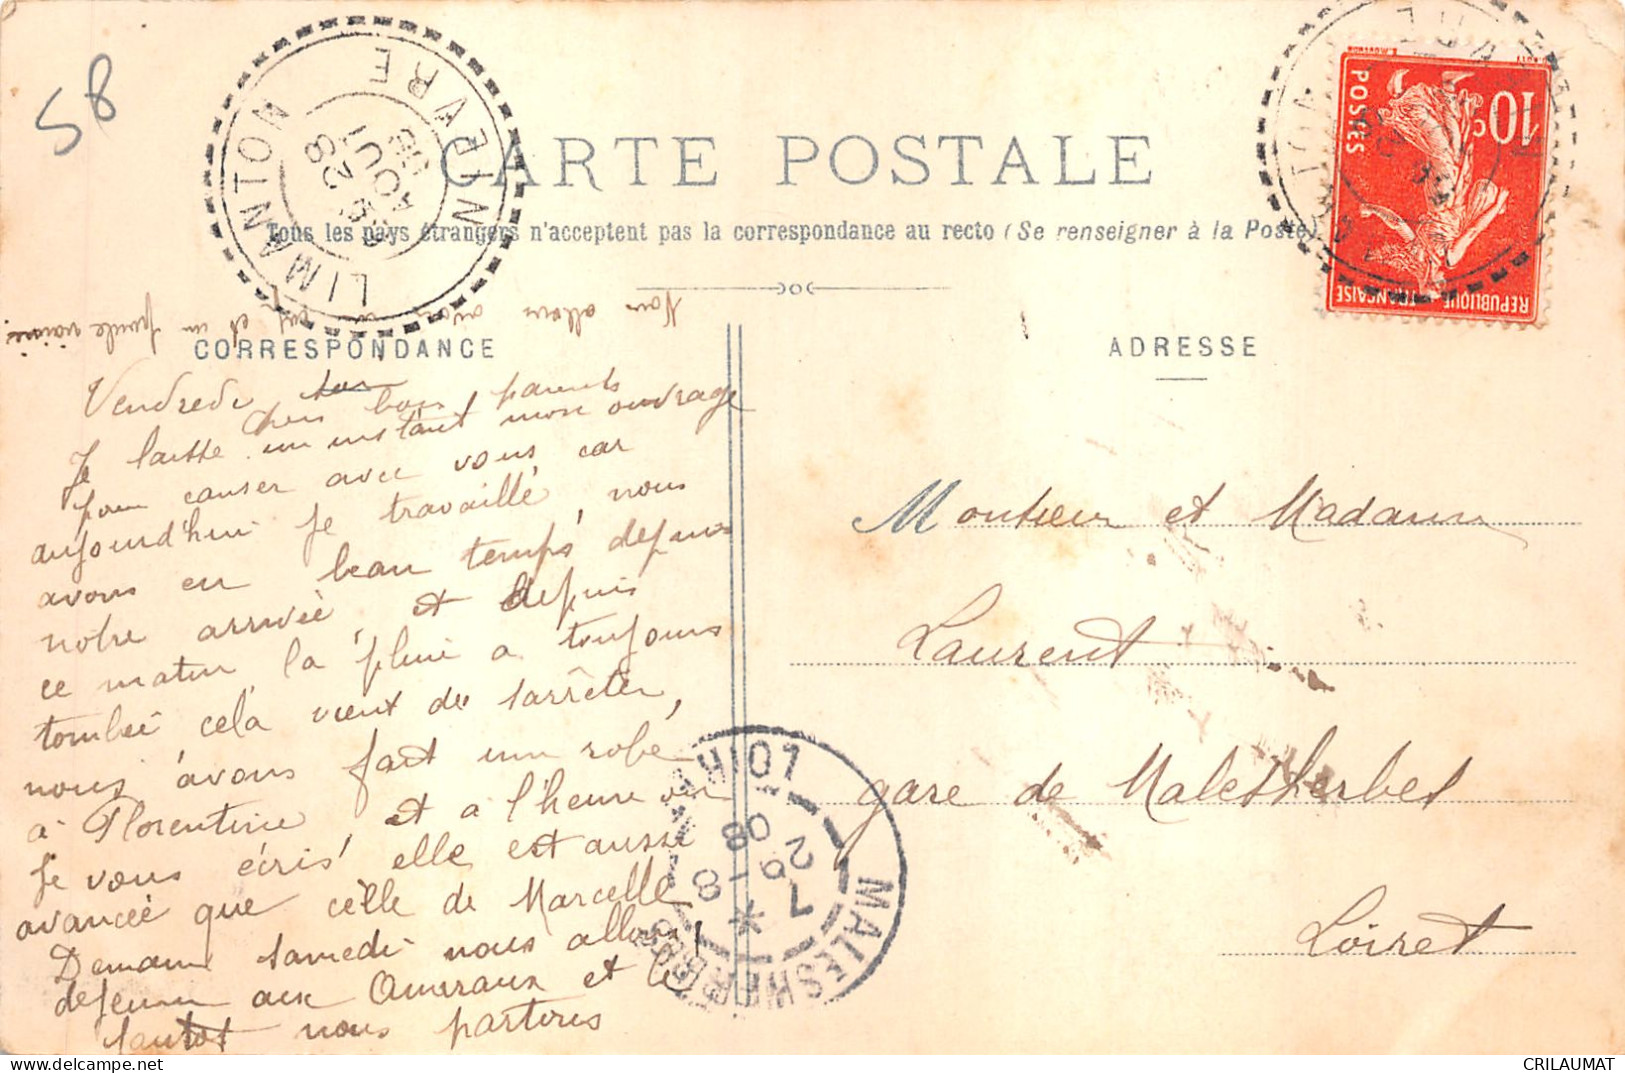 58
LIMANTON
NIEVRE
28
AOUT
08
CARTE POSTALE
Tous les pays étrangers n'acceptent pas la correspondance au recto (Se renseigner à la Poste)
10c
POSTES
REPUBLIQUE FRANÇAISE
CORRESPONDANCE
ADRESSE
Nous allons avoir et un
Vendredi
chers bons parents
Je laisse un instant mon ouvrage
pour causer avec vous car
aujourd'hui je travaille, nous
avons eu beau temps depuis
notre arrivée, et depuis
ce matin la pluie a toujours
tombée cela vient de sarrêter,
nous avons fait une robe
à Florentine et a l'heure ou
je vous écris, elle est aussi
avancée que celle de Marcelle
Demain samedi nous allons
dejeuner aux Ameraux et le
tantot nous partons
Monsieur et Madame
Laurent
gare de Malesherbes
Loiret
MALESHERBES
LOIRET
7 *
29 - 8
08
CRILAUMAT